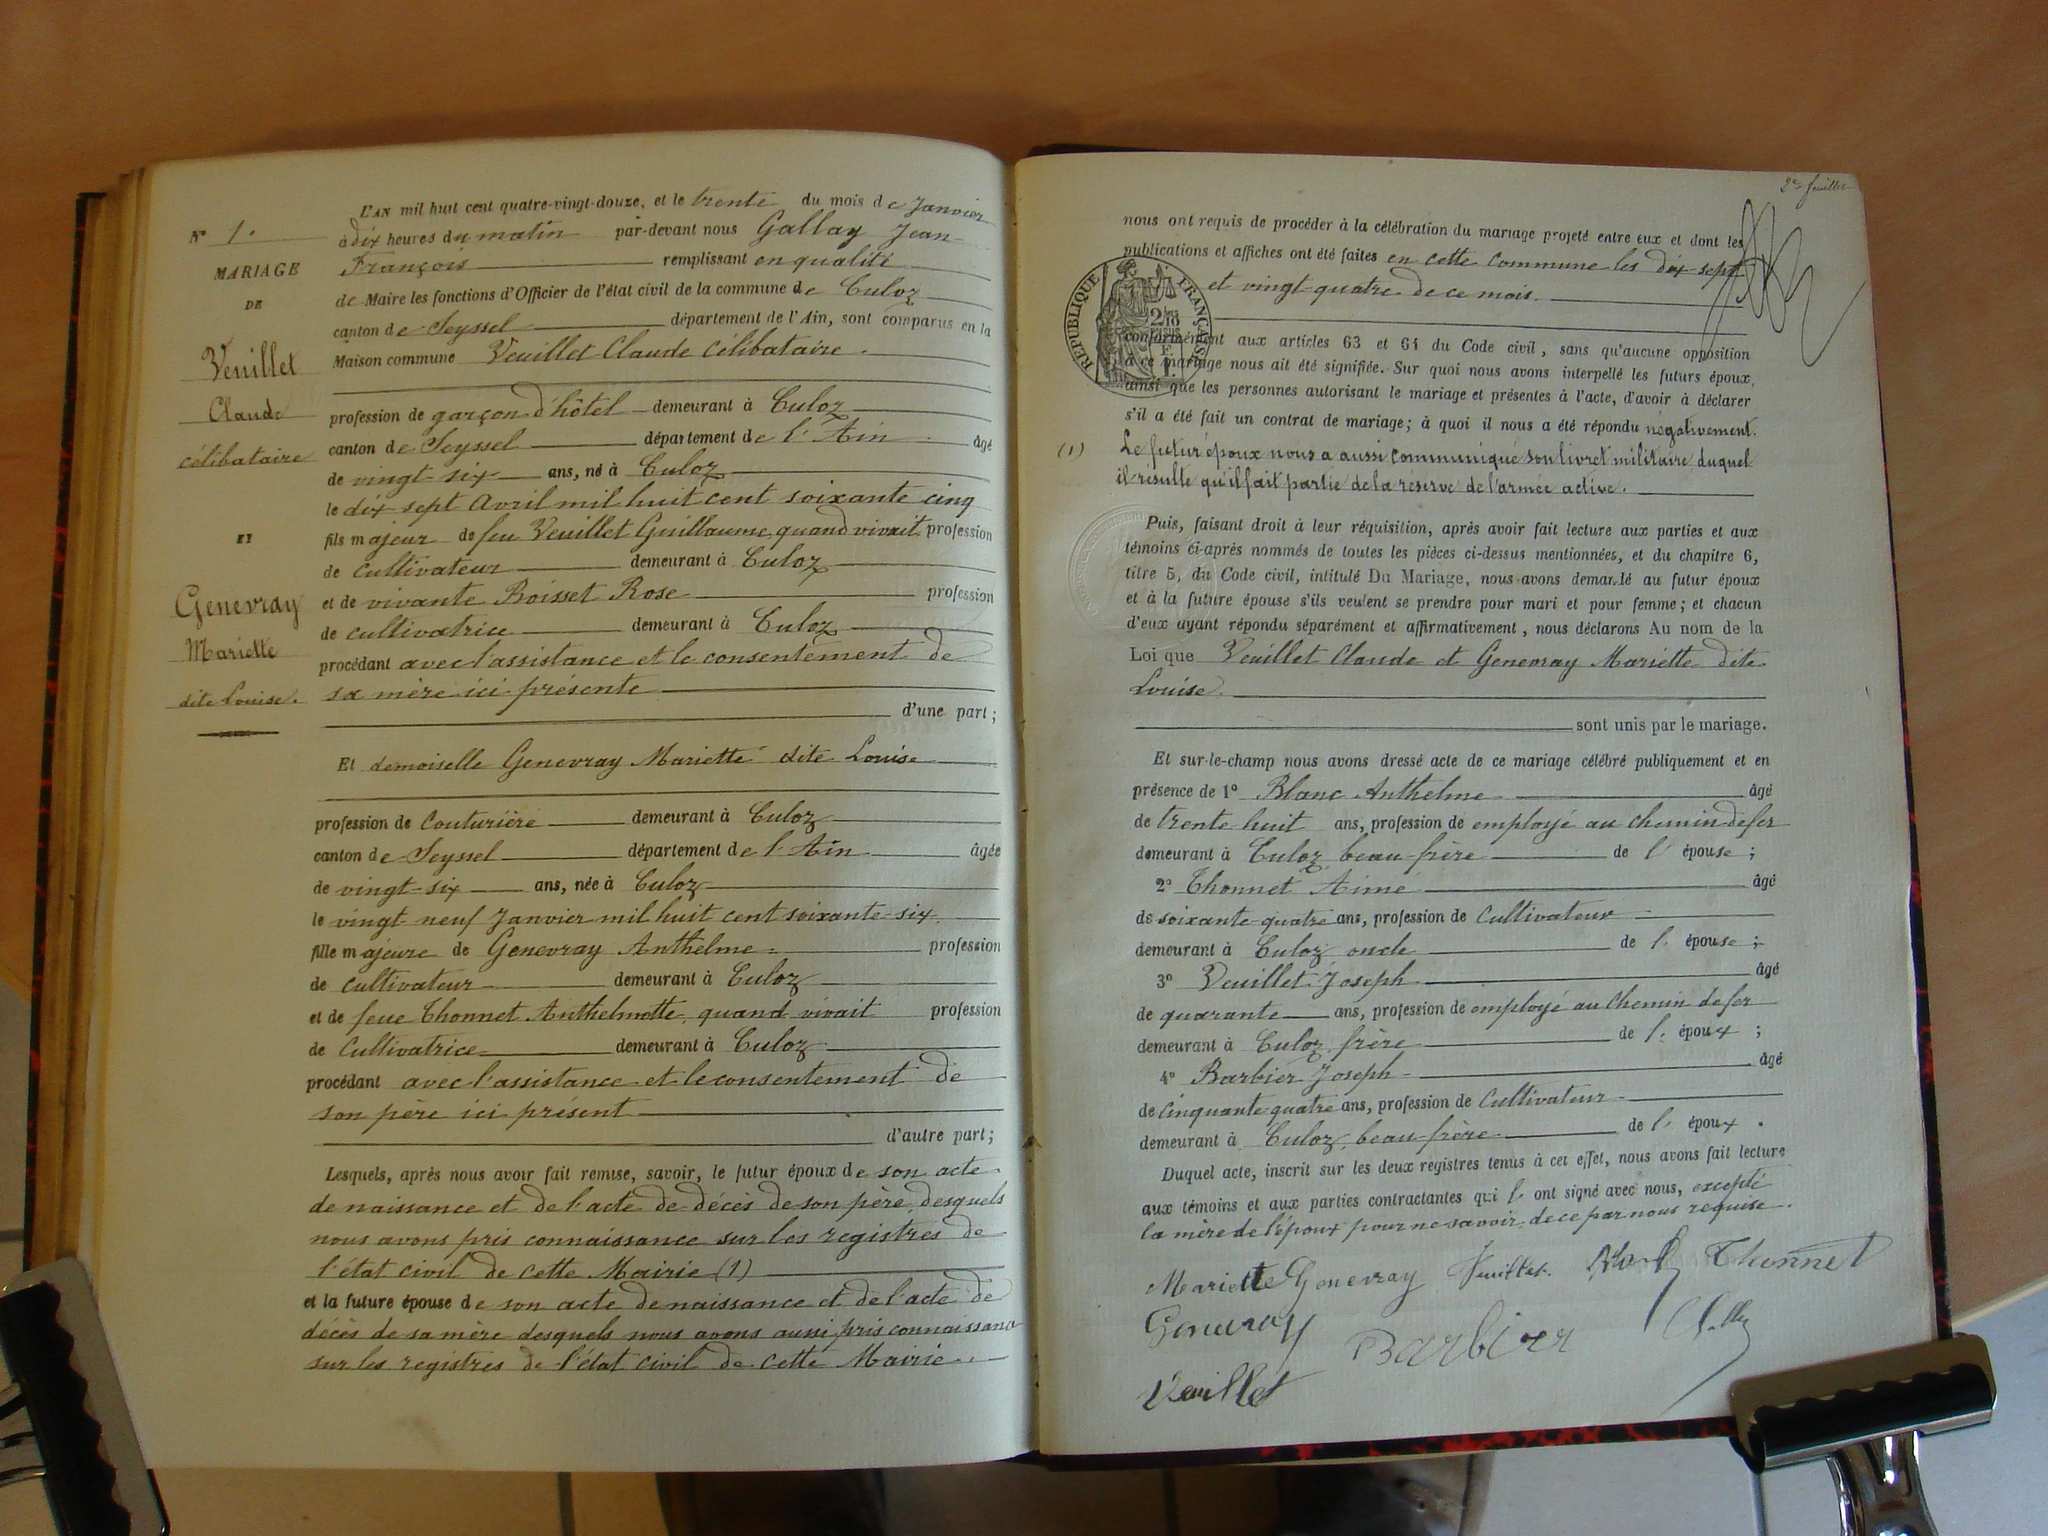 N° 1.
MARIAGE
DE
Veuillet
Claude
célibataire
ET
Genevray
Mariette
dite Louise.
L'AN mil huit cent quatre-vingt-douze, et le trente du mois de Janvier
à dix heures du matin par-devant nous Gallay Jean
François remplissant en qualité
de Maire les fonctions d'Officier de l'état civil de la commune de Culoz
canton de Seyssel département de l'Ain, sont comparus en la
Maison commune Veuillet Claude célibataire.
profession de garçon d'hôtel demeurant à Culoz
canton de Seyssel département de l'Ain âgé
de vingt-six ans, né à Culoz
le dix sept Avril mil huit cent soixante cinq
fils majeur de feu Veuillet Guillaume, quand vivait profession
de cultivateur demeurant à Culoz
et de vivante Boisset Rose profession
de cultivatrice demeurant à Culoz
procédant avec l'assistance et le consentement de
sa mère ici présente
d'une part;
Et demoiselle Genevray Mariette dite Louise
profession de Couturière demeurant à Culoz
canton de Seyssel département de l'Ain âgée
de vingt-six ans, née à Culoz
le vingt neuf Janvier mil huit cent soixante-six
fille majeure de Genevray Anthelme profession
de cultivateur demeurant à Culoz
et de feue Thonnet Anthelmette, quand vivait profession
de Cultivatrice demeurant à Culoz
procédant avec l'assistance et le consentement de
son père ici présent
d'autre part;
Lesquels, après nous avoir fait remise, savoir, le futur époux de son acte
de naissance et de l'acte de décès de son père, desquels
nous avons pris connaissance sur les registres de
l'état civil de cette Mairie (1)
et la future épouse de son acte de naissance et de l'acte de
décès de sa mère desquels nous avons aussi pris connaissance
sur les registres de l'état civil de cette Mairie.
2e feuillet
nous ont requis de procéder à la célébration du mariage projeté entre eux et dont les
publications et affiches ont été faites en cette commune les dix sept
et vingt quatre de ce mois.
RÉPUBLIQUE FRANÇAISE
conformément aux articles 63 et 64 du Code civil, sans qu'aucune opposition
à ce mariage nous ait été signifiée. Sur quoi nous avons interpellé les futurs époux,
ainsi que les personnes autorisant le mariage et présentes à l'acte, d'avoir à déclarer
s'il a été fait un contrat de mariage; à quoi il nous a été répondu négativement.
(1) Le futur époux nous a aussi communiqué son livret militaire duquel
il résulte qu'il fait partie de la réserve de l'armée active.
Puis, faisant droit à leur réquisition, après avoir fait lecture aux parties et aux
témoins ci-après nommés de toutes les pièces ci-dessus mentionnées, et du chapitre 6,
titre 5, du Code civil, intitulé Du Mariage, nous avons demandé au futur époux
et à la future épouse s'ils veulent se prendre pour mari et pour femme; et chacun
d'eux ayant répondu séparément et affirmativement, nous déclarons Au nom de la
Loi que Veuillet Claude et Genevray Mariette dite
Louise
sont unis par le mariage.
Et sur-le-champ nous avons dressé acte de ce mariage célébré publiquement et en
présence de 1° Blanc Anthelme âgé
de trente huit ans, profession de employé au chemin de fer
demeurant à Culoz beau-frère de l'épouse;
2° Thonnet Aimé âgé
de soixante-quatre ans, profession de Cultivateur
demeurant à Culoz oncle de l'épouse;
3° Veuillet Joseph âgé
de quarante ans, profession de employé au chemin de fer
demeurant à Culoz, frère de l'époux;
4° Barbier Joseph âgé
de cinquante quatre ans, profession de Cultivateur
demeurant à Culoz, beau-frère de l'époux.
Duquel acte, inscrit sur les deux registres tenus à cet effet, nous avons fait lecture
aux témoins et aux parties contractantes qui l' ont signé avec nous, excepté
la mère de l'époux pour ne savoir, de ce par nous requise.
Mariette Genevray Veuillet Thonnet
Genevray Barbier
Veuillet